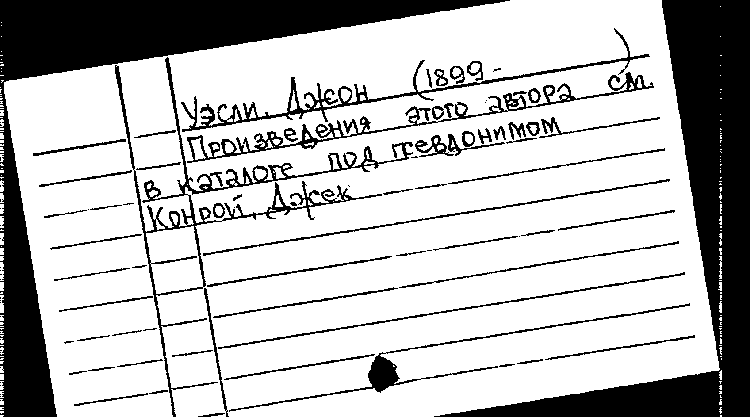 Уэсли, Джон (1899 - )
Произведения этого автора см.
в каталоге под псевдонимом
Конрой, Джек